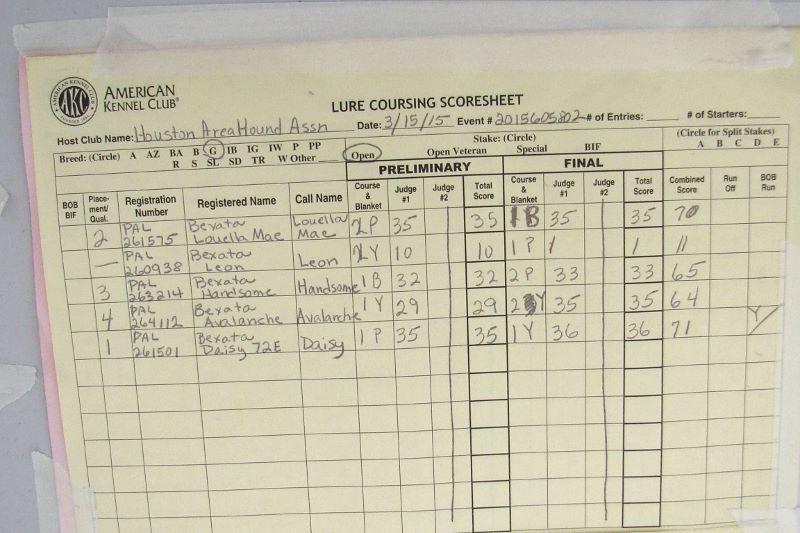 AMERICAN KENNEL CLUB FOUNDED 1884
AKC
AMERICAN
KENNEL CLUB®
LURE COURSING SCORESHEET
Host Club Name: Houston Area Hound Assn Date: 3/15/15 Event # 2015605802 # of Entries: # of Starters:
Stake: (Circle) (Circle for Split Stakes)
Breed: (Circle) A AZ BA B G IB IG IW P PP Open Open Veteran Special BIF A B C D E
R S SL SD TR W Other
PRELIMINARY FINAL
BOB BIF Place-ment/ Qual. Registration Number Registered Name Call Name Course & Blanket Judge #1 Judge #2 Total Score Course & Blanket Judge #1 Judge #2 Total Score Combined Score Run Off BOB Run
2 PAL 261575 Bexata Louella Mae Louella Mae 2P 35 35 1B 35 35 70
— PAL 260938 Bexata Leon Leon 2Y 10 10 1P 1 1 11
3 PAL 263214 Bexata Handsome Handsome 1B 32 32 2P 33 33 65
4 PAL 264112 Bexata Avalanche Avalanche 1Y 29 29 2Y 35 35 64
1 PAL 261501 Bexata Daisy 72E Daisy 1P 35 35 1Y 36 36 71 Y